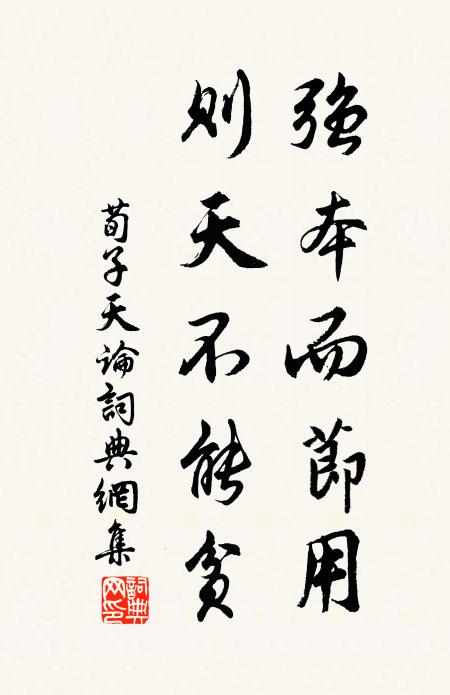 强本而節用
則天不能貧
荀子天論詞典網集
詞典网印